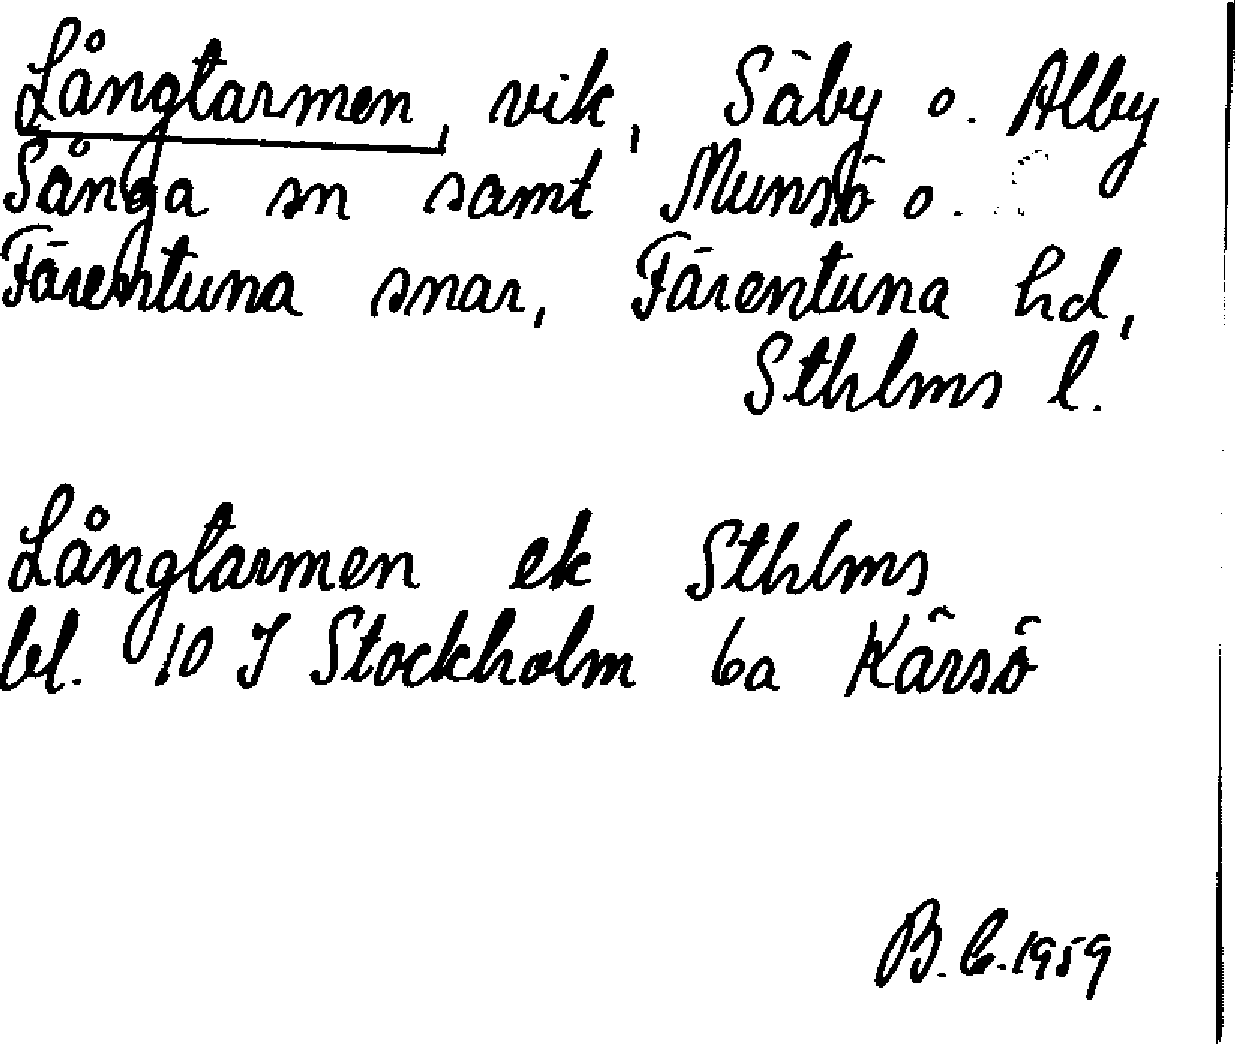 Långtarmen, vik, Säby o. Alby
Sånga sn samt Munsö o.
Färentuna snar, Färentuna hd,
Sthlms l.
Långtarmen ek Sthlms
bl. 10 I Stockholm 6a Kärsö
B.C. 1959